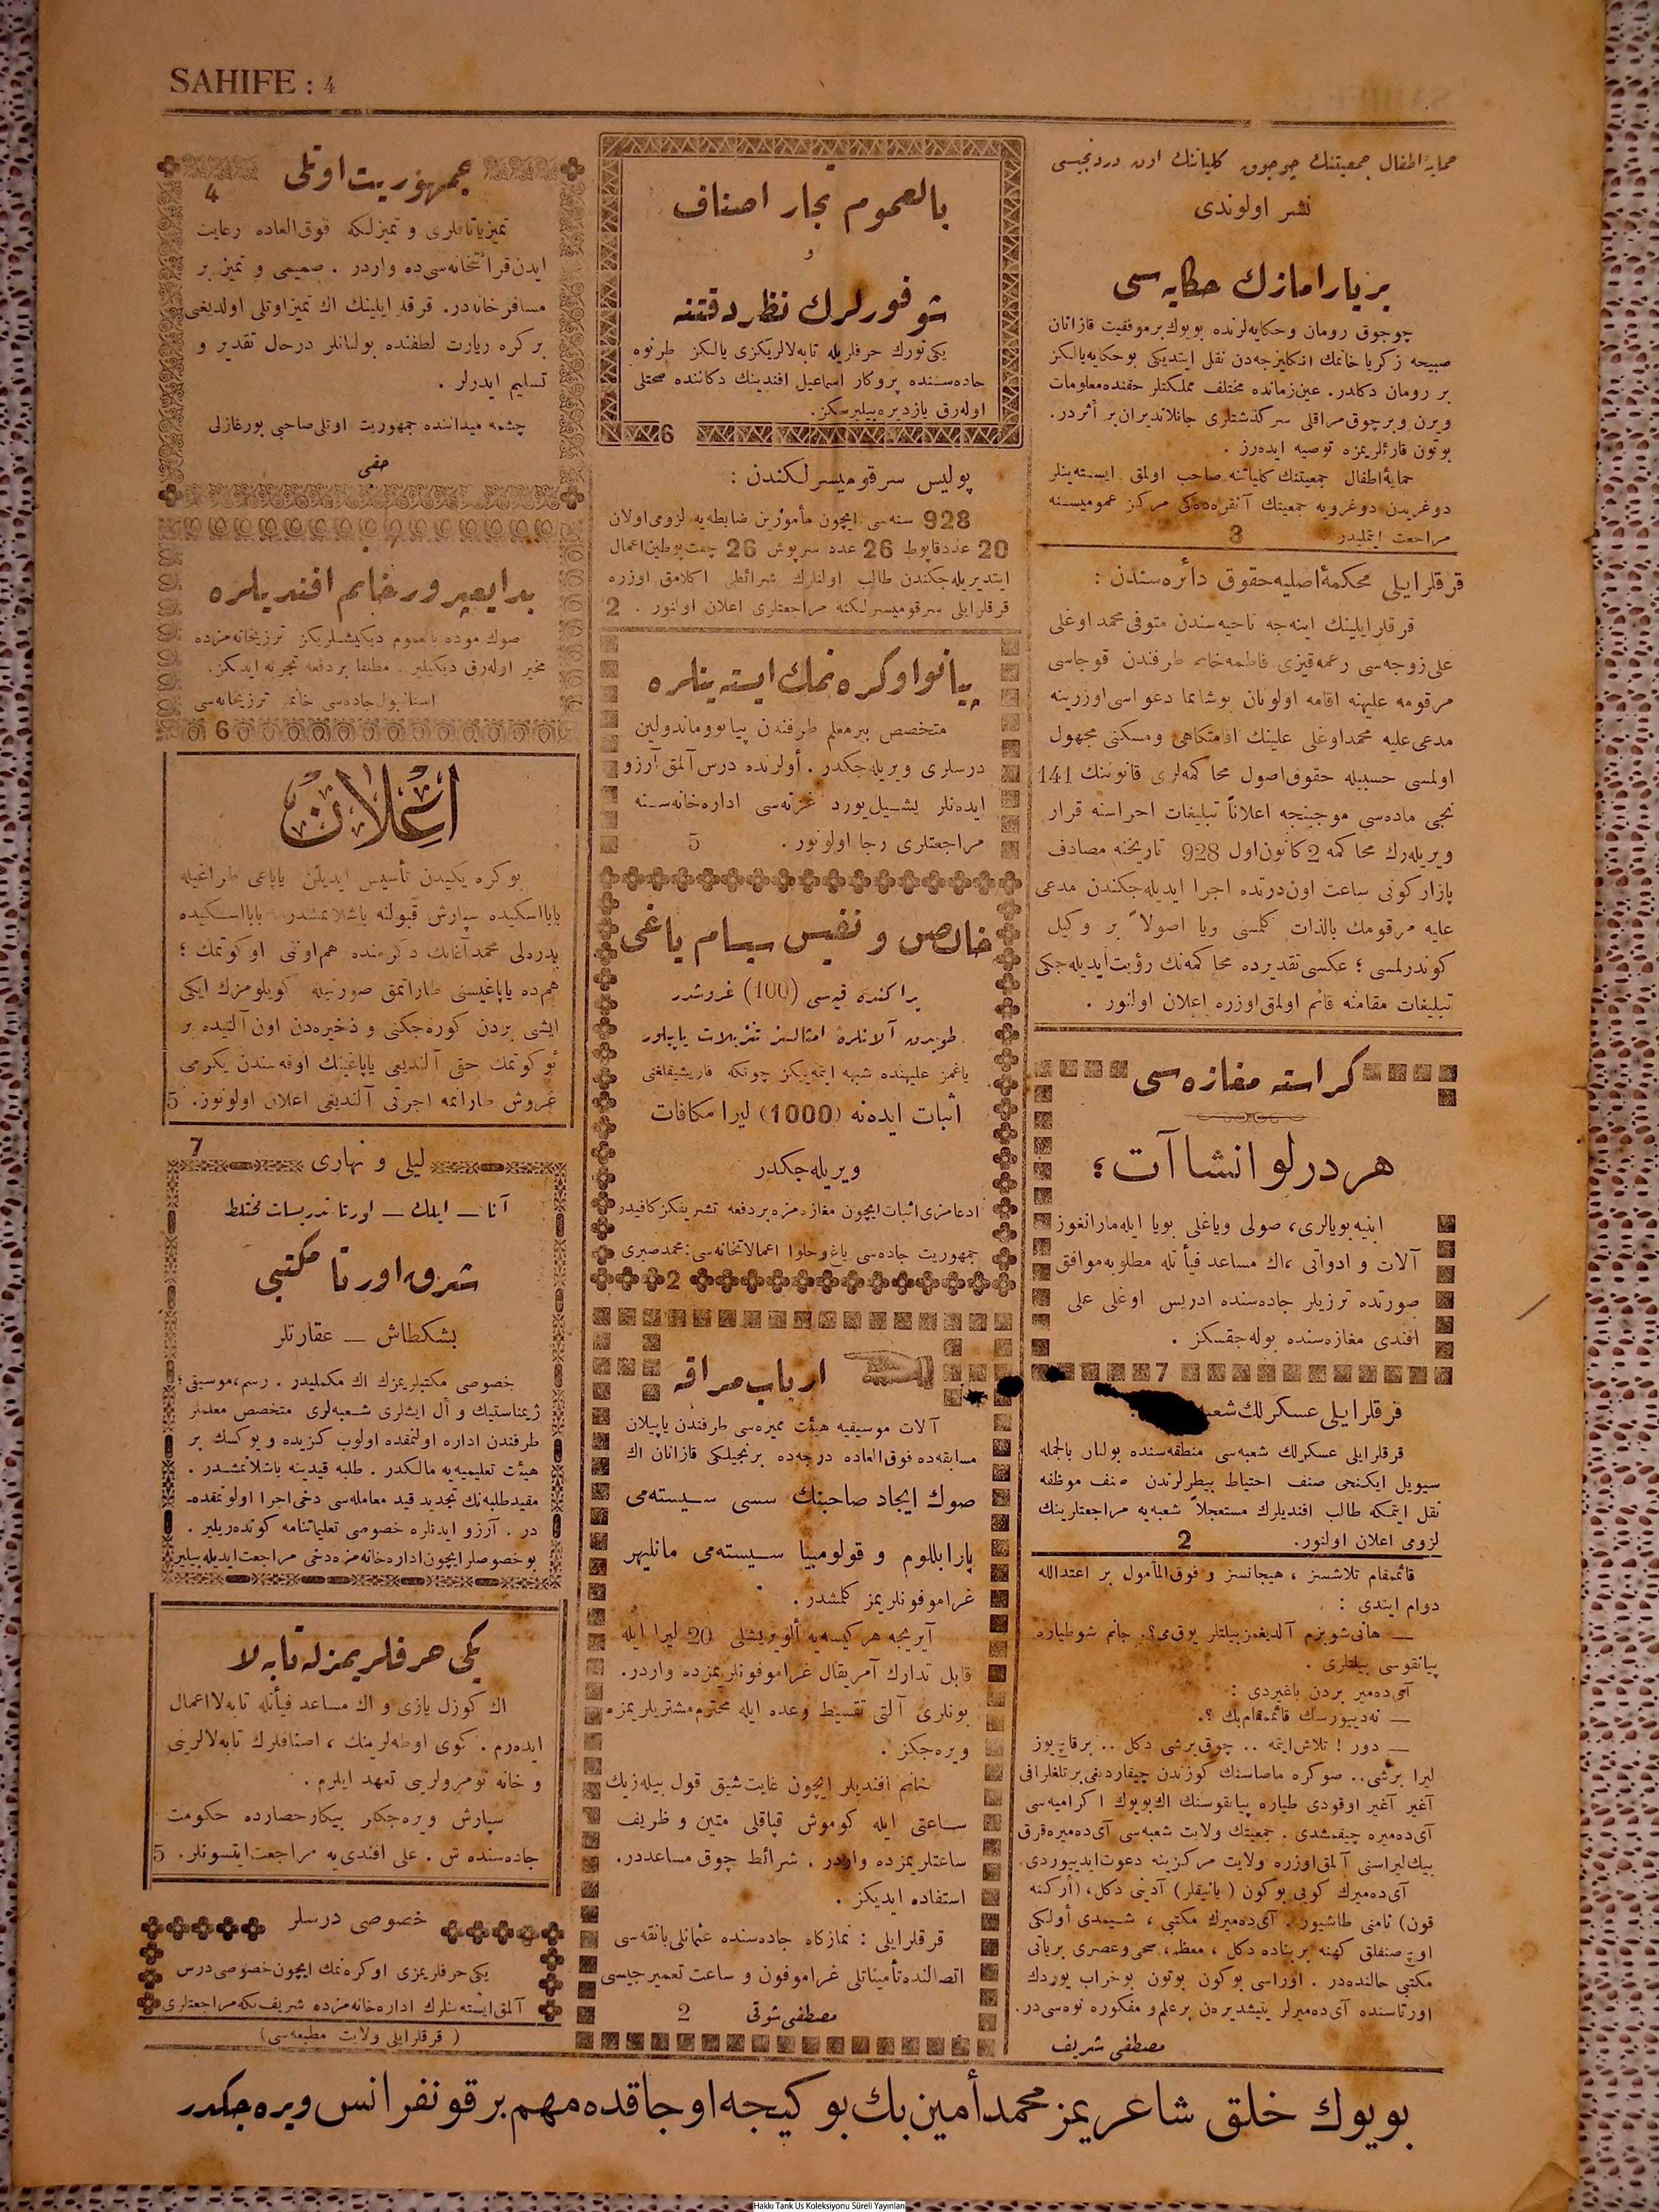 SAHIFE : 4
حمایهٔ اطفال جمعیتنك چوجوق كلیاتنك اون دردنجیسی
نشر اولوندی
بر یارامازك حكایه سی
چوجوق رومان وحكایه‌لرنده بویوك بر موفقیت قازانان
صبیحه زكریا خانمك انكلیزجه‌دن نقل ایتدیكی بو حكایه یالكز
بر رومان دكلدر. عین زمانده مختلف مملكتلر حقنده معلومات
ویرن و بر چوق مراقلی سر كذشتلری جانلاندیران بر أثر در.
بوتون قارئلریمزه توصیه ایده‌رز .
حمایهٔ اطفال جمعیتنك كلیاتنه صاحب اولمق ایسته‌ینلر
دوغریدن دوغرویه جمعیتك آنقره‌ده‌كی مركز عمومیسنه
مراجعت ایتملیدر 3
قرقلرایلی محكمهٔ اصلیه حقوق دائره‌سندن :
قرقلرایلینك اینه‌جه ناحیه‌سندن متوفی محمد اوغلی
علی زوجه‌سی رحمه قیزی فاطمه خانم طرفندن قوجاسی
مرقومه علیهنه اقامه اولونان بوشانما دعواسی اوزرینه
مدعی علیه محمداوغلی علینك اقامتكاهی ومسكنی مجهول
اولمسی حسبیله حقوق اصول محاكمه‌لری قانوننك 141
نجی ماده‌سی موجبنجه اعلاناً تبلیغات اجراسنه قرار
ویریله‌رك محاكمه 2 كانون اول 928 تاریخنه مصادف
پازار كونی ساعت اون درتده اجرا ایدیله‌جكندن مدعی
علیه مرقومك بالذات كلمسی ویا اصولاً بر وكیل
كوندرلمسی ؛ عكسی تقدیرده محاكمه‌نك رؤیت ایدیله‌جكی
تبلیغات مقامنه قائم اولمق اوزره اعلان اولنور .
كراسته مغازه سی
هر درلو انشاآت ؛
ابنیه بویالری، صولی ویاغلی بویا ایله مارانغوز
آلات و ادواتی ،اك مساعد فیأتله مطلوبه موافق
صورتده ترزیلر جاده‌سنده ادریس اوغلی علی
افندی مغازه‌سنده بوله‌جقسكز .
7
قرقلرایلی عسكرلك
قرقلرایلی عسكرلك شعبه‌سی منطقه‌سنده بولنان بالجمله
سیویل ایكنجی صنف احتیاط بیطرلرندن صنف موظفه
نقل ایتمكه طالب افندیلرك مستعجلاً شعبه‌یه مراجعتلرینك
لزومی اعلان اولنور. 2
قائممقام تلاشسز ، هیجانسز و فوق المأمول بر اعتدالله
دوام ایتدی :
— هانی شو بزم آلدیغمز بیلتلر یوق می؟. جانم شو طیاره
پیانقوسی بیلتلری .
آی‌ده‌میر بردن باغیردی :
— نه‌دییورسك قائممقام‌بك ؟.
— دور ! تلاش ایتمه .. چوق برشی دكل .. بر قاچ یوز
لیرا برشی.. صوكره ماصاسنك كوزندن چیقاردیغی بر تلغرافی
آغیر آغیر اوقودی طیاره پیانقوسنك اك بویوك اكرامیه‌سی
آی‌ده‌میره چیقمشدی . جمعیتك ولایت شعبه‌سی آی‌ده‌میره قرق
بیك لیراسنی آلمق اوزره ولایت مركزینه دعوت ایدییوردی.
آی‌ده‌میرك كویی بوكون ( یانیقلر) آدینی دكل، (أركنه
قون) نامنی طاشیور . آی‌ده‌میرك مكتبی ، شیمدی أولكی
اوچ صنفلق كهنه بر بناده دكل ، معظم، صحی وعصری بر یاتی
مكتبی حالنده‌در . اوراسی بوكون بوتون بو خراب یوردك
اورتاسنده آی‌ده‌میرلر یتیشدیره‌ن بر علم و مفكوره یوه‌سی در.
مصطفی شریف
بالعموم تجار اصناف
و
شوفورلرك نظر دقتنه
یكی تورك حرفلریله تابه‌لالریكزی یالكز طرنوه
جاده‌سنده پروكار اسماعیل افندینك دكاننده صحتلی
اوله‌رق یازدیره‌بیلیرسكز.
6
پولیس سرقومیسرلكندن :
928 سنه‌سی ایچون مأمورین ضابطه‌یه لزومی اولان
20 عدد قاپوط 26 عدد سرپوش 26 چفت پوطین اعمال
ایتدیریله‌جكندن طالب اولنلرك شرائطی اكلامق اوزره
قرقلرایلی سرقومیسرلكنه مراجعتلری اعلان اولنور . 2
پیانو اوكره نمك ایسته ینلره
متخصص بر معلم طرفندن پیانو وماندولین
درسلری ویریله‌جكدر . أولرنده درس آلمق آرزو
ایده‌نلر یشیل یورد غزته‌سی اداره‌خانه‌سنه
مراجعتلری رجا اولونور . 5
خالص و نفیس سیسام یاغی
پراكنده قیه‌سی (100) غروشدر
طوپدن آلانلره امثالسز تنزیلات یاپیلور
یاغمز علیهنده شبهه ایتمه‌ییكز چونكه قاریشیقلغنی
اثبات ایده‌نه (1000) لیرا مكافات
ویریله‌جكدر
ادعامزی اثبات ایچون مغازه‌مزه بر دفعه تشریفكز كافیدر
جمهوریت جاده‌سی یاغ وحلوا اعمالاتخانه‌سی: محمد صبری
2
ارباب مراقه
آلات موسیقیه هیئت ممیزه‌سی طرفندن یاپیلان
مسابقه‌ده فوق العاده درجه‌ده برنجیلكی قازانان اك
صوك ایجاد صاحبنك سسی سیسته‌می
پارابللوم و قولومبیا سیسته‌می مانلیهر
غراموفونلریمز كلمشدر .
آیریجه هر كیسه‌یه ألویریشلی 20 لیرا ایله
قابل تدارك آمریقال غراموفونلریمزده واردر.
بونلری آلتی تقسیط وعده ایله محترم مشتریلریمزه
ویره‌جكز .
خانم افندیلر ایچون غایت شیق قول بیله‌زیك
ساعتی ایله كوموش قپاقلی متین و ظریف
ساعتلریمزده واردر . شرائط چوق مساعددر.
استفاده ایدیكز .
قرقلرایلی : نمازكاه جاده‌سنده عثمانلی بانقه‌سی
اتصالنده تأمیناتلی غراموفون و ساعت تعمیرجیسی
مصطفی شوقی 2
جمهوریت اوتلی
4
تمیز یاتاقلری و تمیزلكه فوق العاده رعایت
ایدن قرائتخانه‌سی ده واردر . صمیمی و تمیز بر
مسافرخانه‌در. قرقلرایلینك اك تمیز اوتلی اولدیغی
بر كره زیارت لطفنده بولنانلر درحال تقدیر و
تسلیم ایدرلر .
چشمه میداننده جمهوریت اوتلی صاحبی بورغازلی
حقی
بدایعپرور خانم افندیلره
صوك موده بالعموم دیكیشلریكز ترزیخانه‌مزده
مخیر اوله‌رق دیكیلیر. مطلقا بر دفعه تجربه ایدیكز.
استانبول جاده‌سی خانم ترزیخانه‌سی
6
اعلان
بو كره یكیدن تأسیس ایدیلن یاپاغی طراغیله
بابااسكیده سپارش قبولنه باشلانمشدر. بابااسكیده
پدره‌لی محمد آغانك دكرمنده هم اونی اوكوتمك ؛
هم‌ده یاپاغیسنی طاراتمق صورتیله كویلومزك ایكی
ایشی بردن كوره‌جكنی و ذخیره‌دن اون آلتیده بر
أوكوتمك حقی آلندیغی یاپاغینك اوقه‌سندن یكرمی
غروش طارانمه اجرتی آلندیغی اعلان اولونور. 5
7
لیلی و نهاری
آنا — ایلك — اورتا تدریسات مختلط
شرق اورتا مكتبی
بشكطاش — عقارتلر
خصوصی مكتبلریمزك اك مكملیدر . رسم، موسیقی؛
ژیمناستیك و أل ایشلری شعبه‌لری متخصص معلملر
طرفندن اداره اولنمقده اولوب كزیده و یوكسك بر
هیئت تعلیمیه‌یه مالكدر . طلبه قیدینه باشلانمشدر .
مقید طلبه‌نك تجدید قید معامله‌سی دخی اجرا اولونمقده-
در . آرزو ایدنلره خصوصی تعلیماتنامه كوندریلیر .
بو خصوصلر ایچون اداره‌خانه‌مزه دخی مراجعت ایدیله‌بیلیر
یكی حرفلریمزله تابه لا
اك كوزل یازی و اك مساعد فیأتله تابه‌لا اعمال
ایده‌رم . كوی اوطه‌لرینك ، اصنافلرك تابه‌لالرینی
و خانه نومرولرینی تعهد ایلرم .
سپارش ویره‌جكلر بیكارحصارده حكومت
جاده‌سنده ش . علی افندی‌یه مراجعت ایتسونلر. 5
خصوصی درسلر
یكی حرفلریمزی اوكره‌نمك ایچون خصوصی درس
آلمق ایسته‌ینلرك اداره‌خانه‌مزده شریف بكه مراجعتلری
( قرقلرایلی ولایت مطبعه‌سی)
بویوك خلق شاعریمز محمد أمین بك بو كیجه اوجاقده مهم بر قونفرانس ویره‌جكدر
Hakkı Tarık Us Koleksiyonu Süreli Yayınları